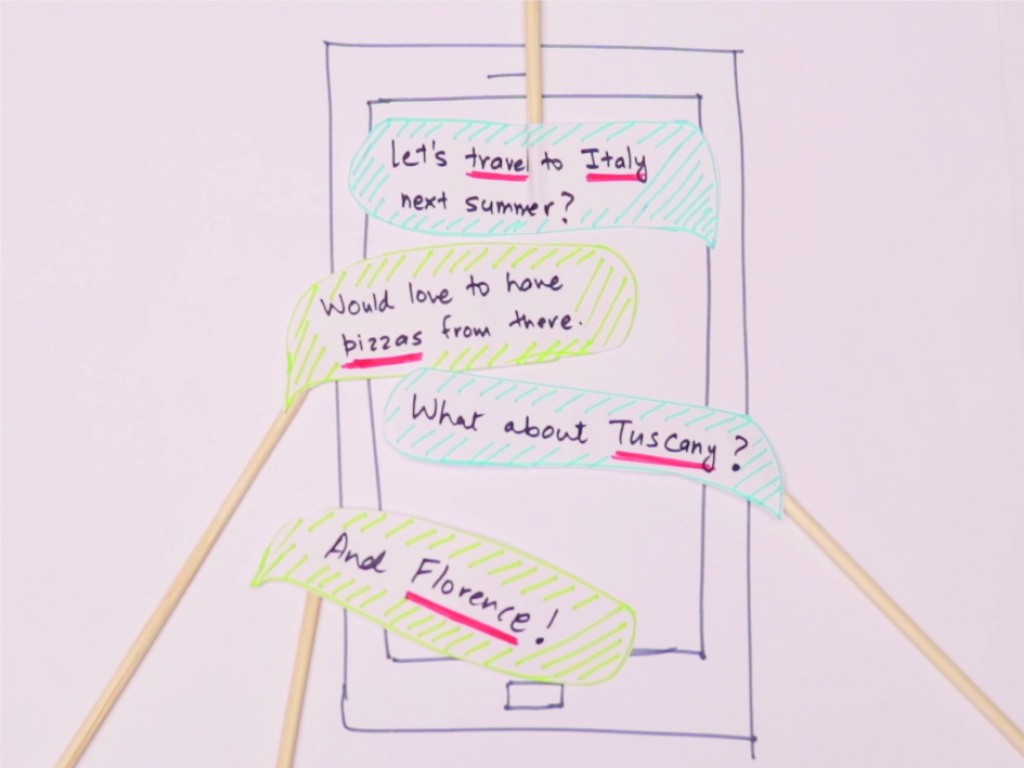 Let's travel to Italy
next summer?
Would love to have
pizzas from there.
What about Tuscany?
And Florence!